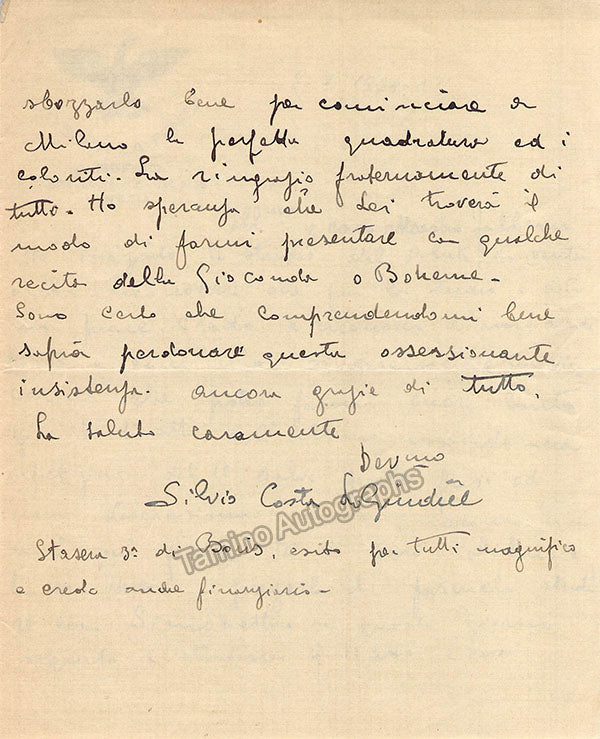 sbozzarlo bene per cominciare a
Milano la perfetta quadratura ed i
coloriti. La ringrazio fraternamente di
tutto. Ho speranza che Lei troverà il
modo di farmi presentare con qualche
recita della Gioconda o Boheme -
Sono certo che comprendendomi bene
saprà perdonare questa ossessionante
insistenza. ancora grazie di tutto.
La saluto caramente
Dev.mo
Silvio Costa Lo Giudice
Tamino Autographs
Stasera 3ª di Boris, esito per tutti magnifico
e credo anche finanziario -